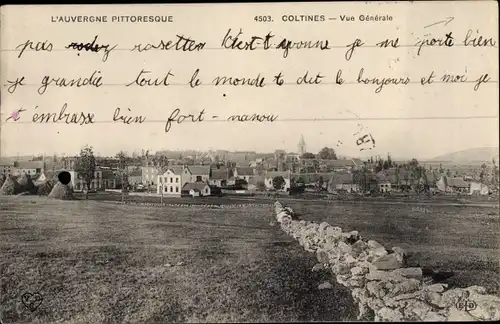 L'AUVERGNE PITTORESQUE
4503. COLTINES – Vue Générale
pas rosetter yvonne je me porte bien
je grandie tout le monde te dit le bonjours et moi je
t embrasse bien fort - nanou
ELD